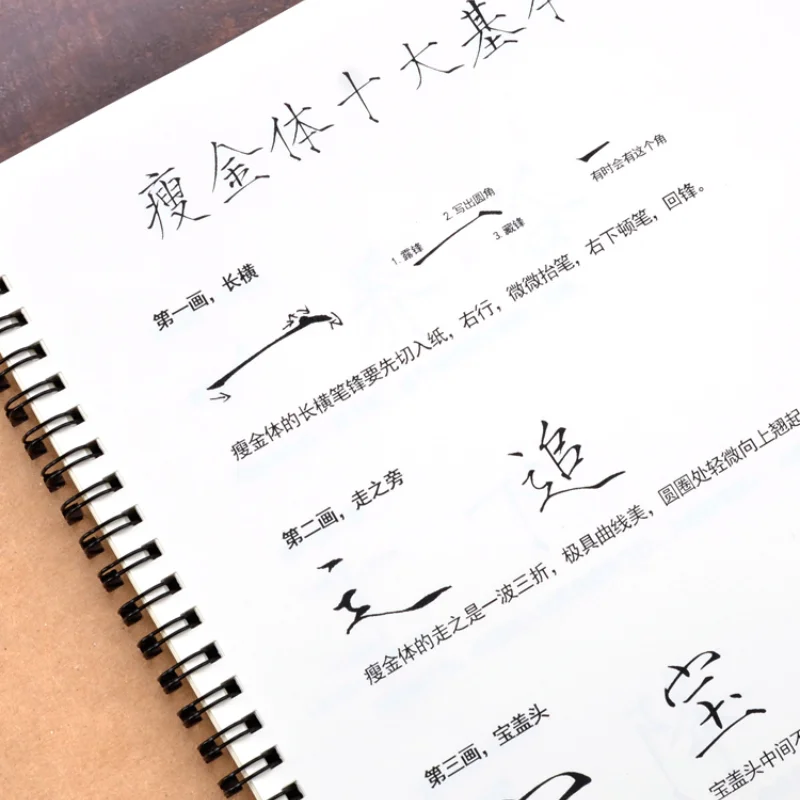 瘦金体十大基
有时会有这个角
2. 写出圆角
1. 露锋
3. 藏锋
第一画，长横
瘦金体的长横笔锋要先切入纸，右行，微微抬笔，右下顿笔，回锋。
第二画，走之旁
追
瘦金体的走之是一波三折，极具曲线美，圆圈处轻微向上翘起
第三画，宝盖头
宝
宝盖头中间